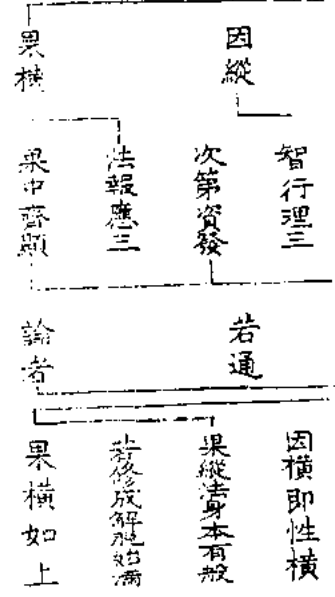 因縱
果橫
智行理三
次第資發
法報應三
果中齊顯
若通
論者
因橫即性橫
果縱法身本有般
若修成解脫始滿
果橫如上